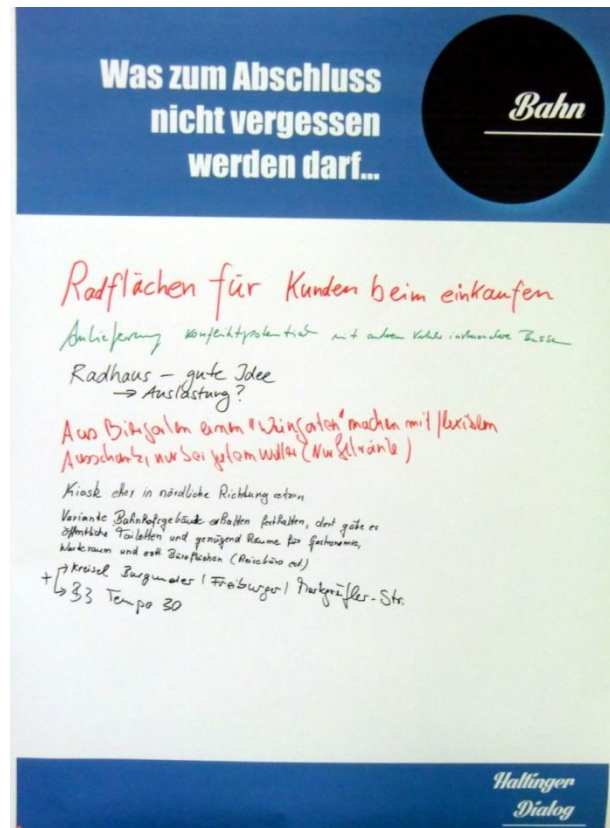 Was zum Abschluss
nicht vergessen
werden darf...
Bahn
Radflächen für Kunden beim einkaufen
Anlieferung konfliktpotential mit anderem Verkehr insbesondere Bussen
Radhaus – gute Idee
→ Auslastung?
Aus Biergarten einen "Weingarten" machen mit flexiblem
Ausschank, nur bei gutem Wetter (Nur Getränke)
Kiosk eher in nördliche Richtung setzen
Variante Bahnhofsgebäude erhalten festhalten, dort gäbe es
öffentliche Toiletten und genügend Räume für Gastronomie,
Warteraum und evtl Büroflächen (Reisebüro ect.)
+ → Kreisel Burgunder / Freiburger / Markgräfler-Str.
→ B3 Tempo 30
Haltinger
Dialog